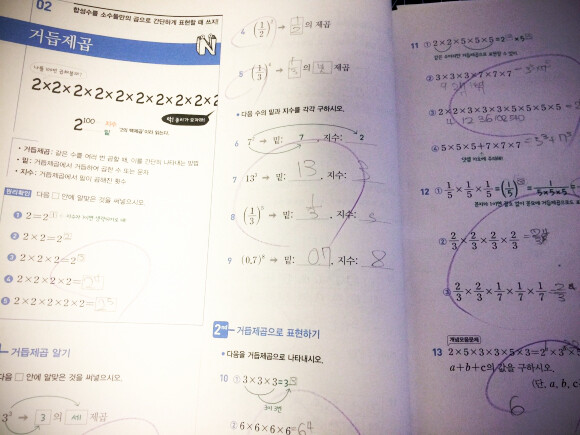 02 합성수를 소수들만의 곱으로 간단하게 표현할 때 쓰지!
거듭제곱
N
2×2×2×2×2×2×2×2×2×2
2¹⁰⁰
밑
• 거듭제곱: 같은 수를 여러 번 곱할 때, 이를 간단히 나타내는 방법
• 밑: 거듭제곱에서 거듭하여 곱한 수 또는 문자
• 지수: 거듭제곱에서 밑이 곱해진 횟수
원리확인 다음 □ 안에 알맞은 것을 써넣으시오.
❶ 2=2①
❷ 2×2=2②
❸ 2×2×2=2③
❹ 2×2×2×2=2⁴
❺ 2×2×2×2×2=2⁵
거듭제곱 알기
다음 □ 안에 알맞은 것을 써넣으시오.
3³ → 3 의 세 제곱
4 (1/2)² → 1/2 의 제곱
의 제곱
• 다음 수의 밑과 지수를 각각 구하시오.
6 7² → 밑: 7 , 지수: 2
7 13³ → 밑: 13 , 지수: 3
8 (1/3)⁵ → 밑: 1/3 , 지수: 5
9 (0.7)⁸ → 밑: 0.7 , 지수: 8
2nd 거듭제곱으로 표현하기
• 다음을 거듭제곱으로 나타내시오.
10 ① 3×3×3=3³
3이 3번
② 6×6×6×6=6⁴
11 ① 2×2×5×5×5=2②×5③
② 3×3×3×7×7×7
③ 2×2×3×3×3×5×5×5×5
④ 5×5×5+7×7×7
12 ① 1/5×1/5×1/5=(1/5)③=1/(5×5×5)
② 2/3×2/3×2/3×2/3
③ 2/3×2/3×1/7×1/7×1/7
개념모음문제
13 2×5×3×3×5×3=2ᵃ×3ᵇ
a+b+c의 값을 구하시오.
(단, a, b, c
6